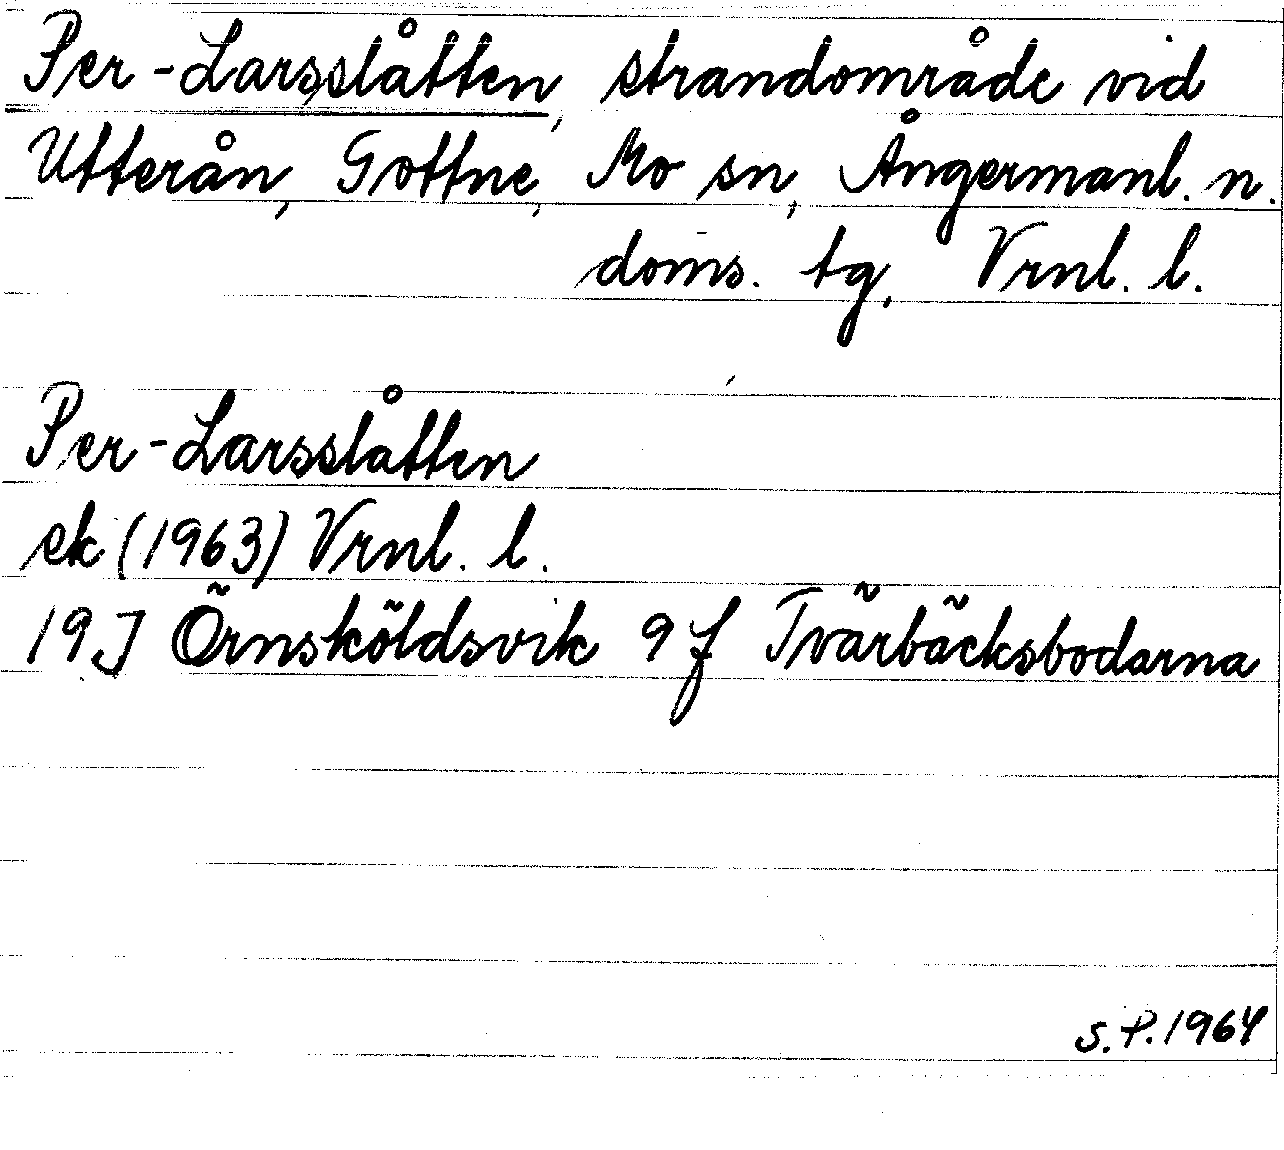 Per-Larsslåtten, strandområde vid
Utterån, Gottne, Mo sn, Ångermanl. n.
doms. tg, Vrnl. l.
Per-Larsslåtten
ek (1963) Vrnl. l.
19 J Örnsköldsvik 9 f Tvärbäcksbodarna
S.P. 1964